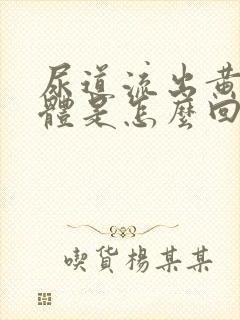 尿道流出黄
體是怎麼回
喫貨楊某某